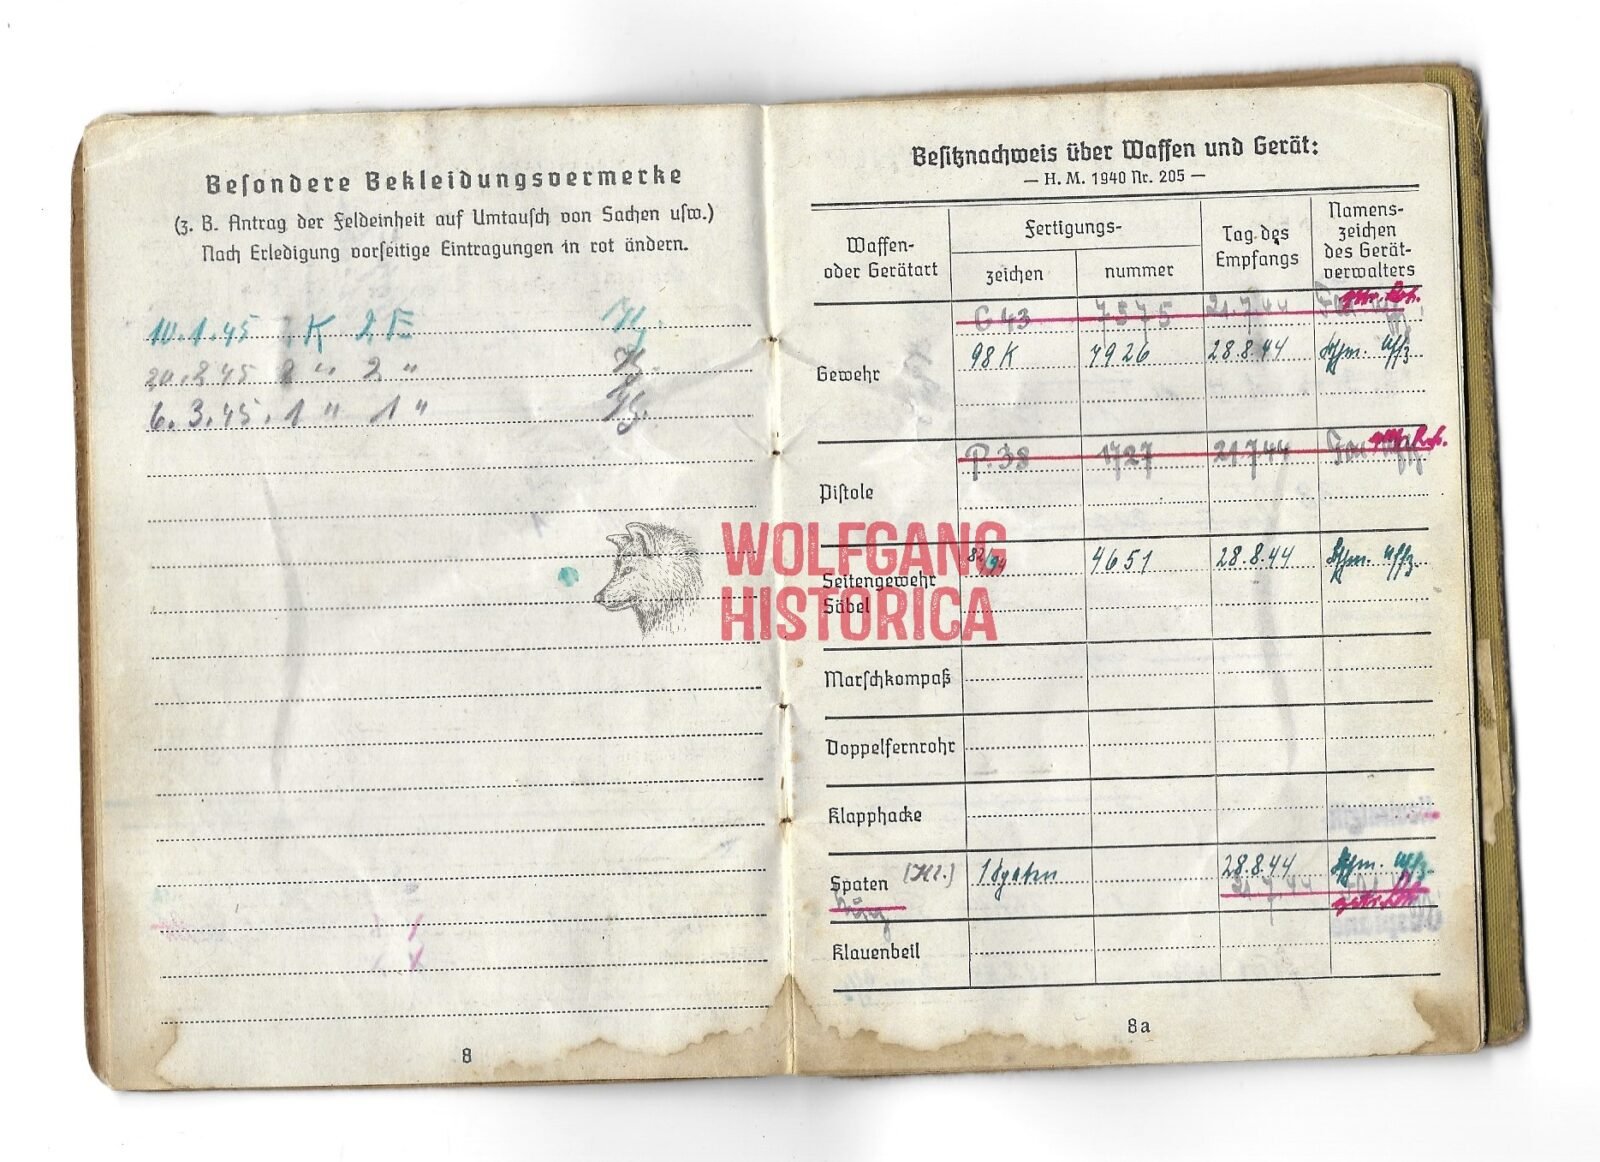 Besondere Bekleidungsvermerke
(z. B. Antrag der Feldeinheit auf Umtausch von Sachen usw.)
Nach Erledigung vorseitige Eintragungen in rot ändern.
10.1.45 1 K 2 E
20.2.45 2 " 2 "
6.3.45. 1 " 1 "
8
Besitznachweis über Waffen und Gerät:
— H. M. 1940 Nr. 205 —
Waffen- oder Gerätart
Fertigungs-
zeichen nummer
Tag des Empfangs
Namens-
zeichen
des Gerät-
verwalters
G 43 7575 21.7.44
Gewehr 98 K 7926 28.8.44 Uffz.
P. 38 1727 21.7.44
Pistole
Seitengewehr 4651 28.8.44 Uffz.
Säbel
Marschkompaß
Doppelfernrohr
Klapphacke
Spaten 1 Spaten 28.8.44 Uffz.
21.7.44
Klauenbeil
8a
WOLFGANG
HISTORICA